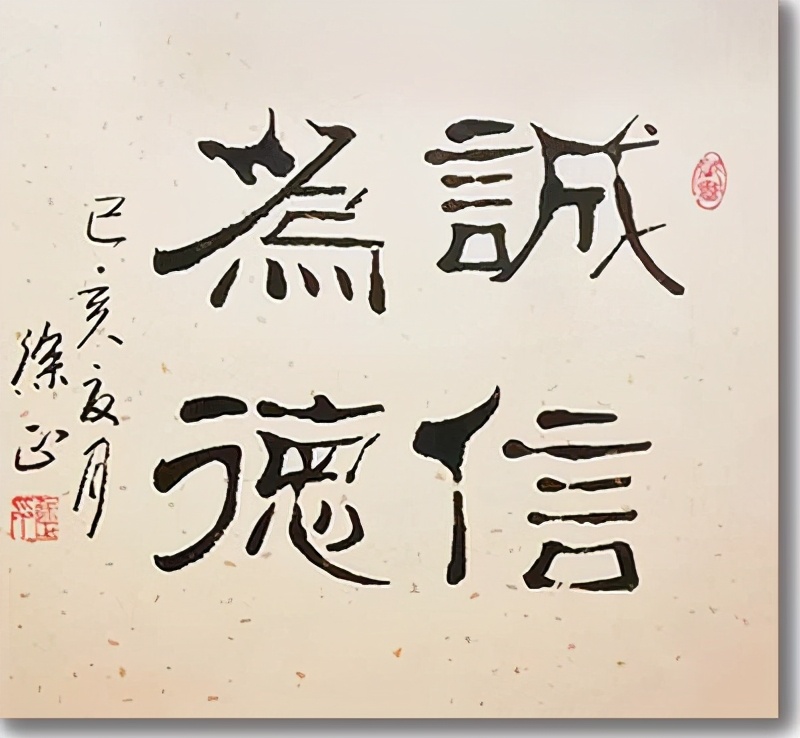 誠信
為德
己亥夏月
徐正